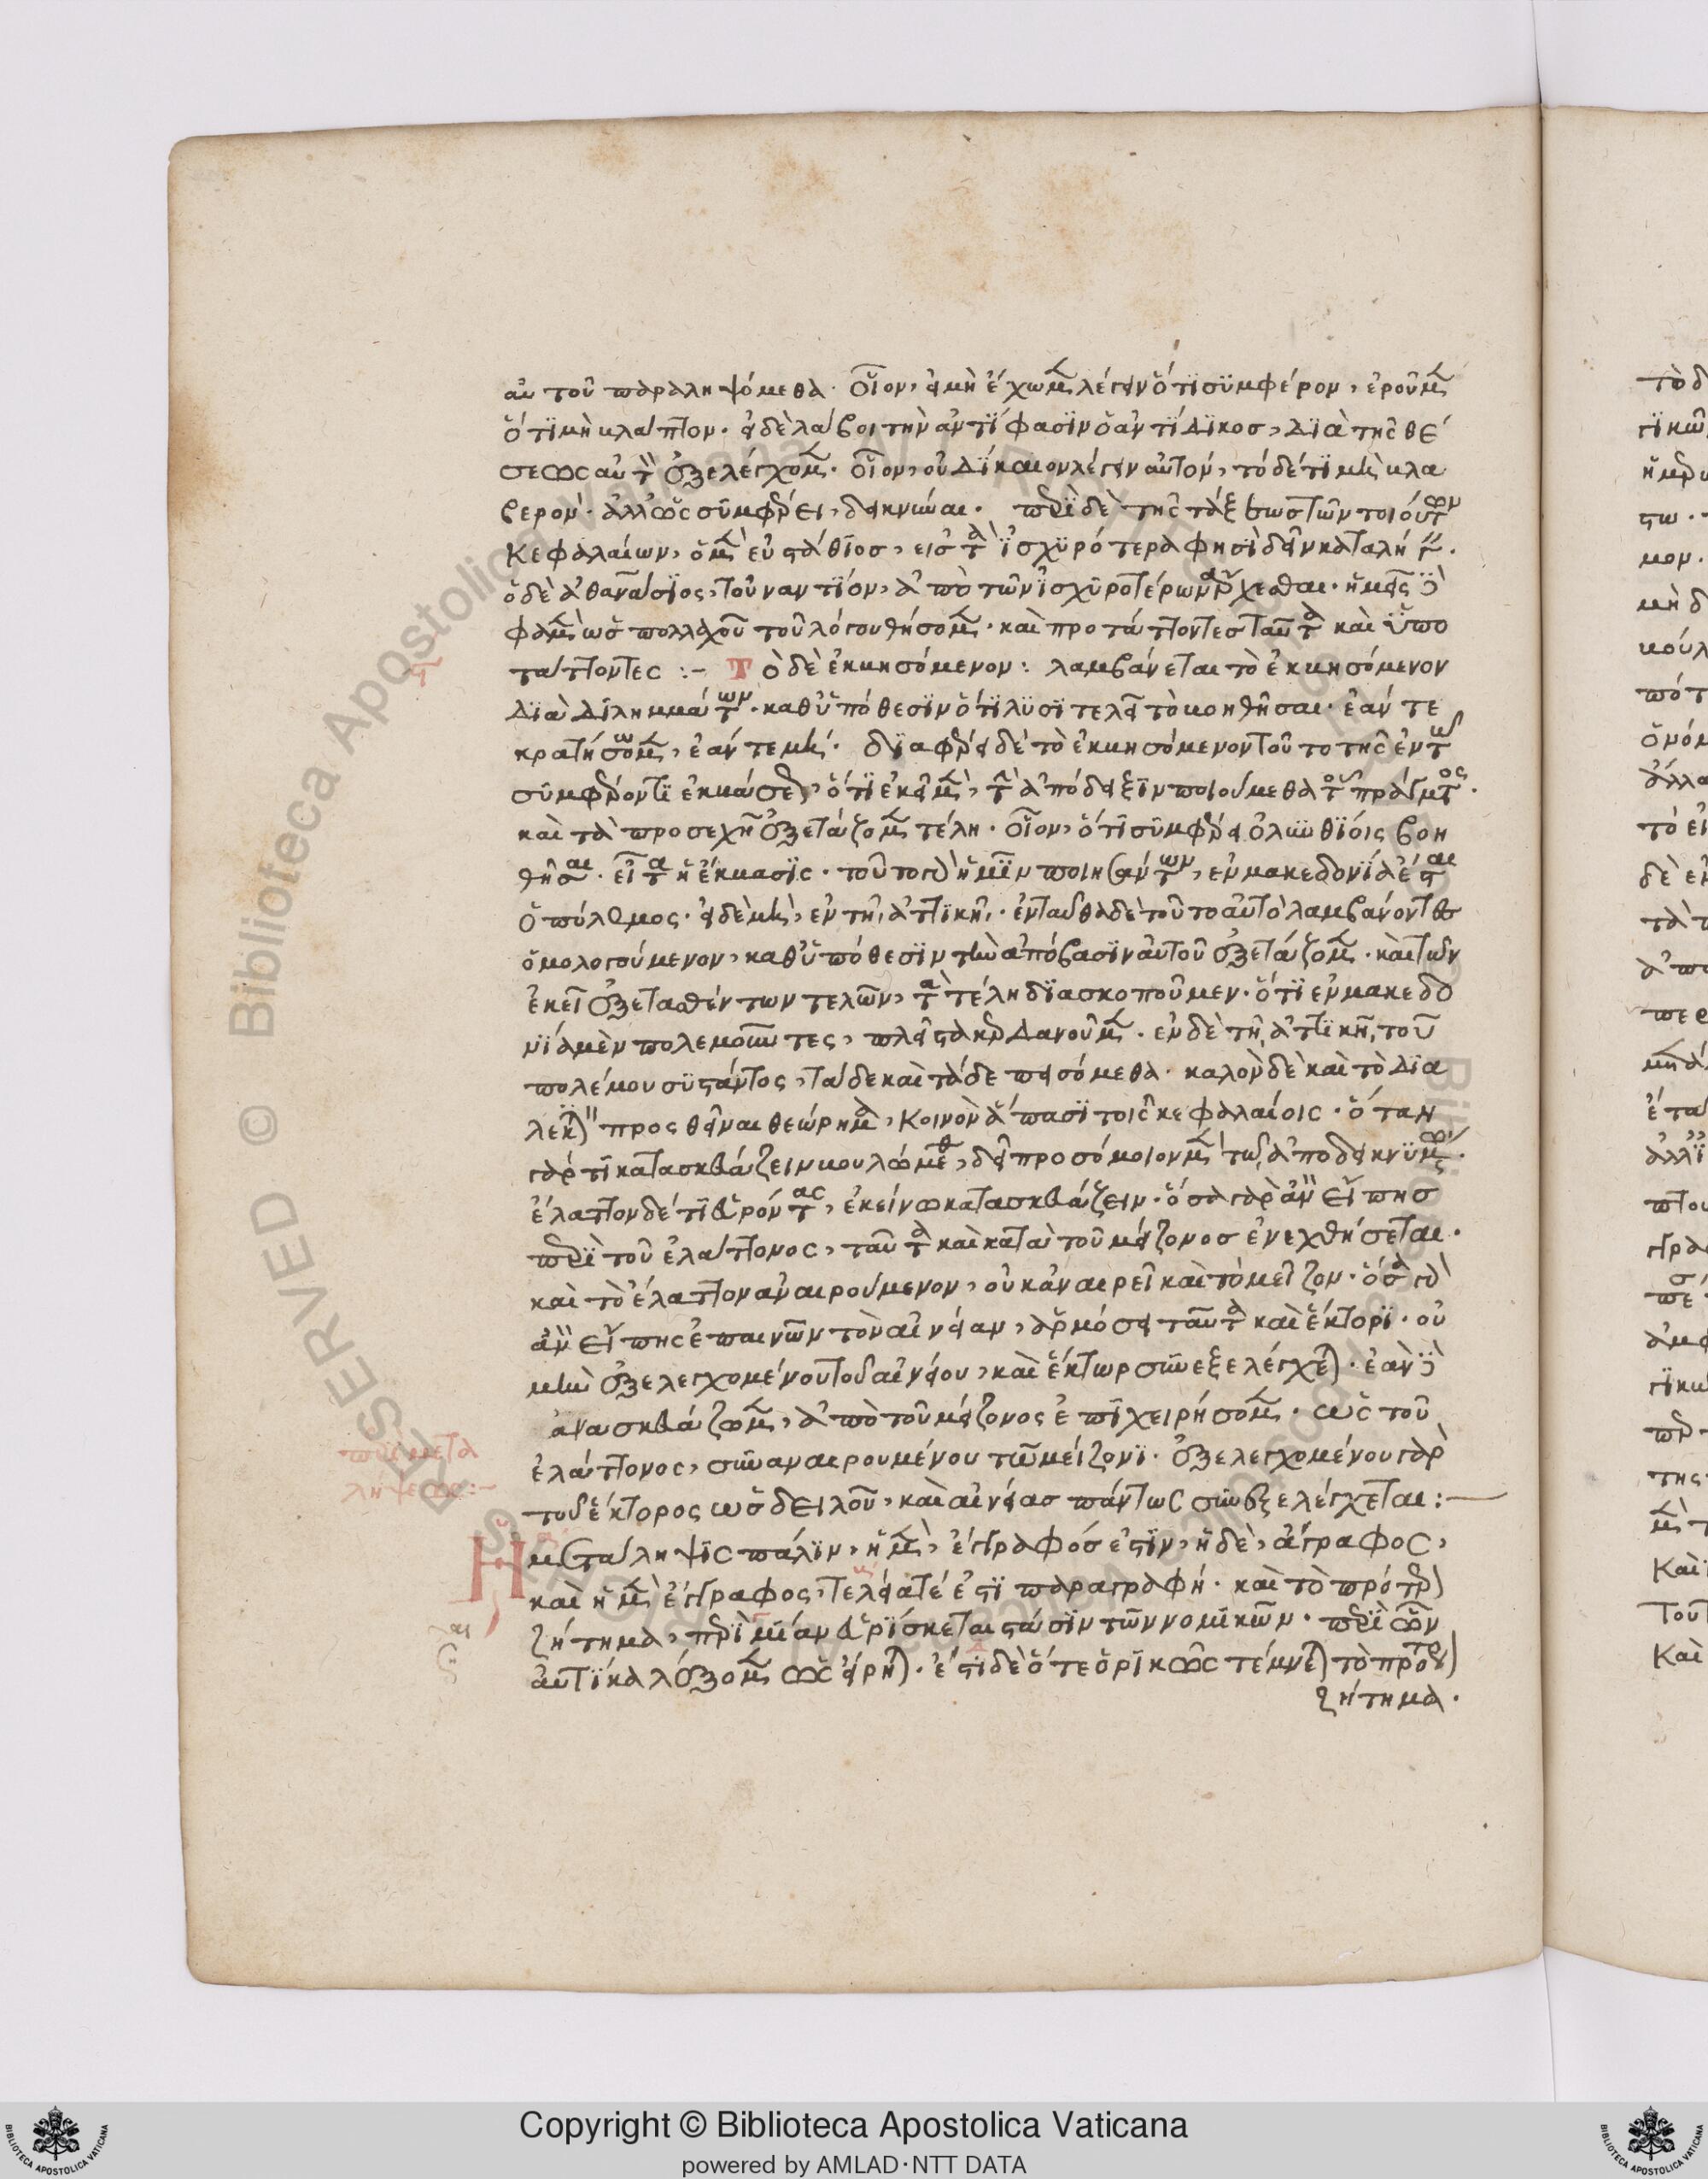 αὐτοῦ παραληψόμεθα· οἷον, εἰ μὴ ἔχωμεν λέγειν ὅτι συμφέρον, ἐροῦμεν
ὅτι μὴ βλάπτον· εἰ δὲ λάβοι τὴν ἀντίφασιν ὁ ἀντίδικος, διὰ τῆς θέ
σεως αὐτὴν ἐξελέγχομεν· οἷον, οὐ δίκαιον λέγειν αὐτόν, τὸ δέ τι μὴ βλα
βερόν· ἀλλ' ὡς συμφέρει, δεικνύναι· περὶ δὲ τῆς τάξεως τῶν τοιούτων
κεφαλαίων, ὁ μὲν εὐστάθιος, εἰς τὰ ἰσχυρότερα φησὶ δεῖν καταλήγειν·
ὁ δὲ ἀθανάσιος, τοὐναντίον, ἀπὸ τῶν ἰσχυροτέρων ἄρχεσθαι· ἡμεῖς δὲ
φαμὲν ὡς πολλαχοῦ τοῦ λόγου θήσομεν· καὶ προτάττοντες ταῦτα καὶ ὑπο
τάττοντες :- Τὸ δὲ ἐκβησόμενον: λαμβάνεται τὸ ἐκβησόμενον
διὰ διλημμάτων· καθ' ὑπόθεσιν ὅτι λυσιτελεῖ τὸ βοηθῆσαι· ἐάν τε
κρατήσωμεν, ἐάν τε μή· διαφέρει δὲ τὸ ἐκβησόμενον τοῦτο τῆς ἐν τῷ
συμφέροντι ἐκβάσεως, ὅτι ἐκεῖ μὲν, τὴν ἀπόδειξιν ποιούμεθα τοῦ πράγματος·
καὶ τὰ προσεχῆ ἐξετάζομεν τέλη· οἷον, ὅτι συμφέρει ὀλυνθίοις βοη
θῆσαι· εἶτα ἡ ἔκβασις· τοῦτο γὰρ ἡμῖν ποιησάντων, ἐν μακεδονίᾳ ἔσται
ὁ πόλεμος· εἰ δὲ μὴ, ἐν τῇ ἀττικῇ· ἐνταῦθα δὲ τοῦτο αὐτὸ λαμβάνοντες
ὁμολογούμενον, καθ' ὑπόθεσιν τὴν ἀπόβασιν αὐτοῦ ἐξετάζομεν· καὶ τῶν
ἐκεῖ ἐξετασθέντων τελῶν, τὰ τέλη διασκοποῦμεν· ὅτι ἐν μακεδο
νίᾳ μὲν πολεμοῦντες, πλεῖστα κερδανοῦμεν· ἐν δὲ τῇ ἀττικῇ, τοῦ
πολέμου συστάντος, τάδε καὶ τάδε πεισόμεθα· καλὸν δὲ καὶ τὸ δια
προσθεῖναι θεώρημα, κοινὸν ἅπασι τοῖς κεφαλαίοις· ὅταν
γάρ τι κατασκευάζειν βουλώμεθα, δεῖ προσόμοιον μὲν τῷ ἀποδεικνυμένῳ·
ἔλαττον δέ τι εὑρόντας, ἐκείνω κατασκευάζειν· ὅσα γὰρ ἂν εἴπης
περὶ τοῦ ἐλάττονος, ταῦτα καὶ κατὰ τοῦ μείζονος ἐνεχθήσεται·
καὶ τὸ ἔλαττον ἀναιρούμενον, οὐκ ἀναιρεῖ καὶ τὸ μεῖζον· ὅσα γὰρ
ἂν εἴπης ἐπαινῶν τὸν αἰνείαν, ἁρμόσει ταῦτα καὶ ἕκτορι· οὐ
μὴν ἐξελεγχομένου τοῦ αἰνείου, καὶ ἕκτωρ συνεξελέγχεται· ἐὰν δὲ
ἀνασκευάζωμεν, ἀπὸ τοῦ μείζονος ἐπιχειρήσομεν· ὡς τοῦ
ἐλάττονος, συναναιρουμένου τῶ μείζονι· ἐξελεγχομένου γὰρ
τοῦ ἕκτορος ὡς δειλοῦ, καὶ αἰνείας πάντως συνεξελέγχεται :—
περὶ μετα
λήψεως :-
Ἡ μετάληψις πάλιν, ἡ μὲν, ἔγγραφός ἐστιν, ἡ δὲ, ἄγραφος,
καὶ ἡ μὲν ἔγγραφος, τελεία τέ ἐστι παραγραφή· καὶ τὸ πρότερον
ζήτημα, περὶ μίαν εὑρίσκεται στάσιν τῶν νομικῶν· περὶ ὧν
αὐτίκα λέξομεν ὡς εἴρηται· ἔστι δὲ ὅτε ὁρικῶς τέμνεται τὸ πρότερον
ζήτημα.